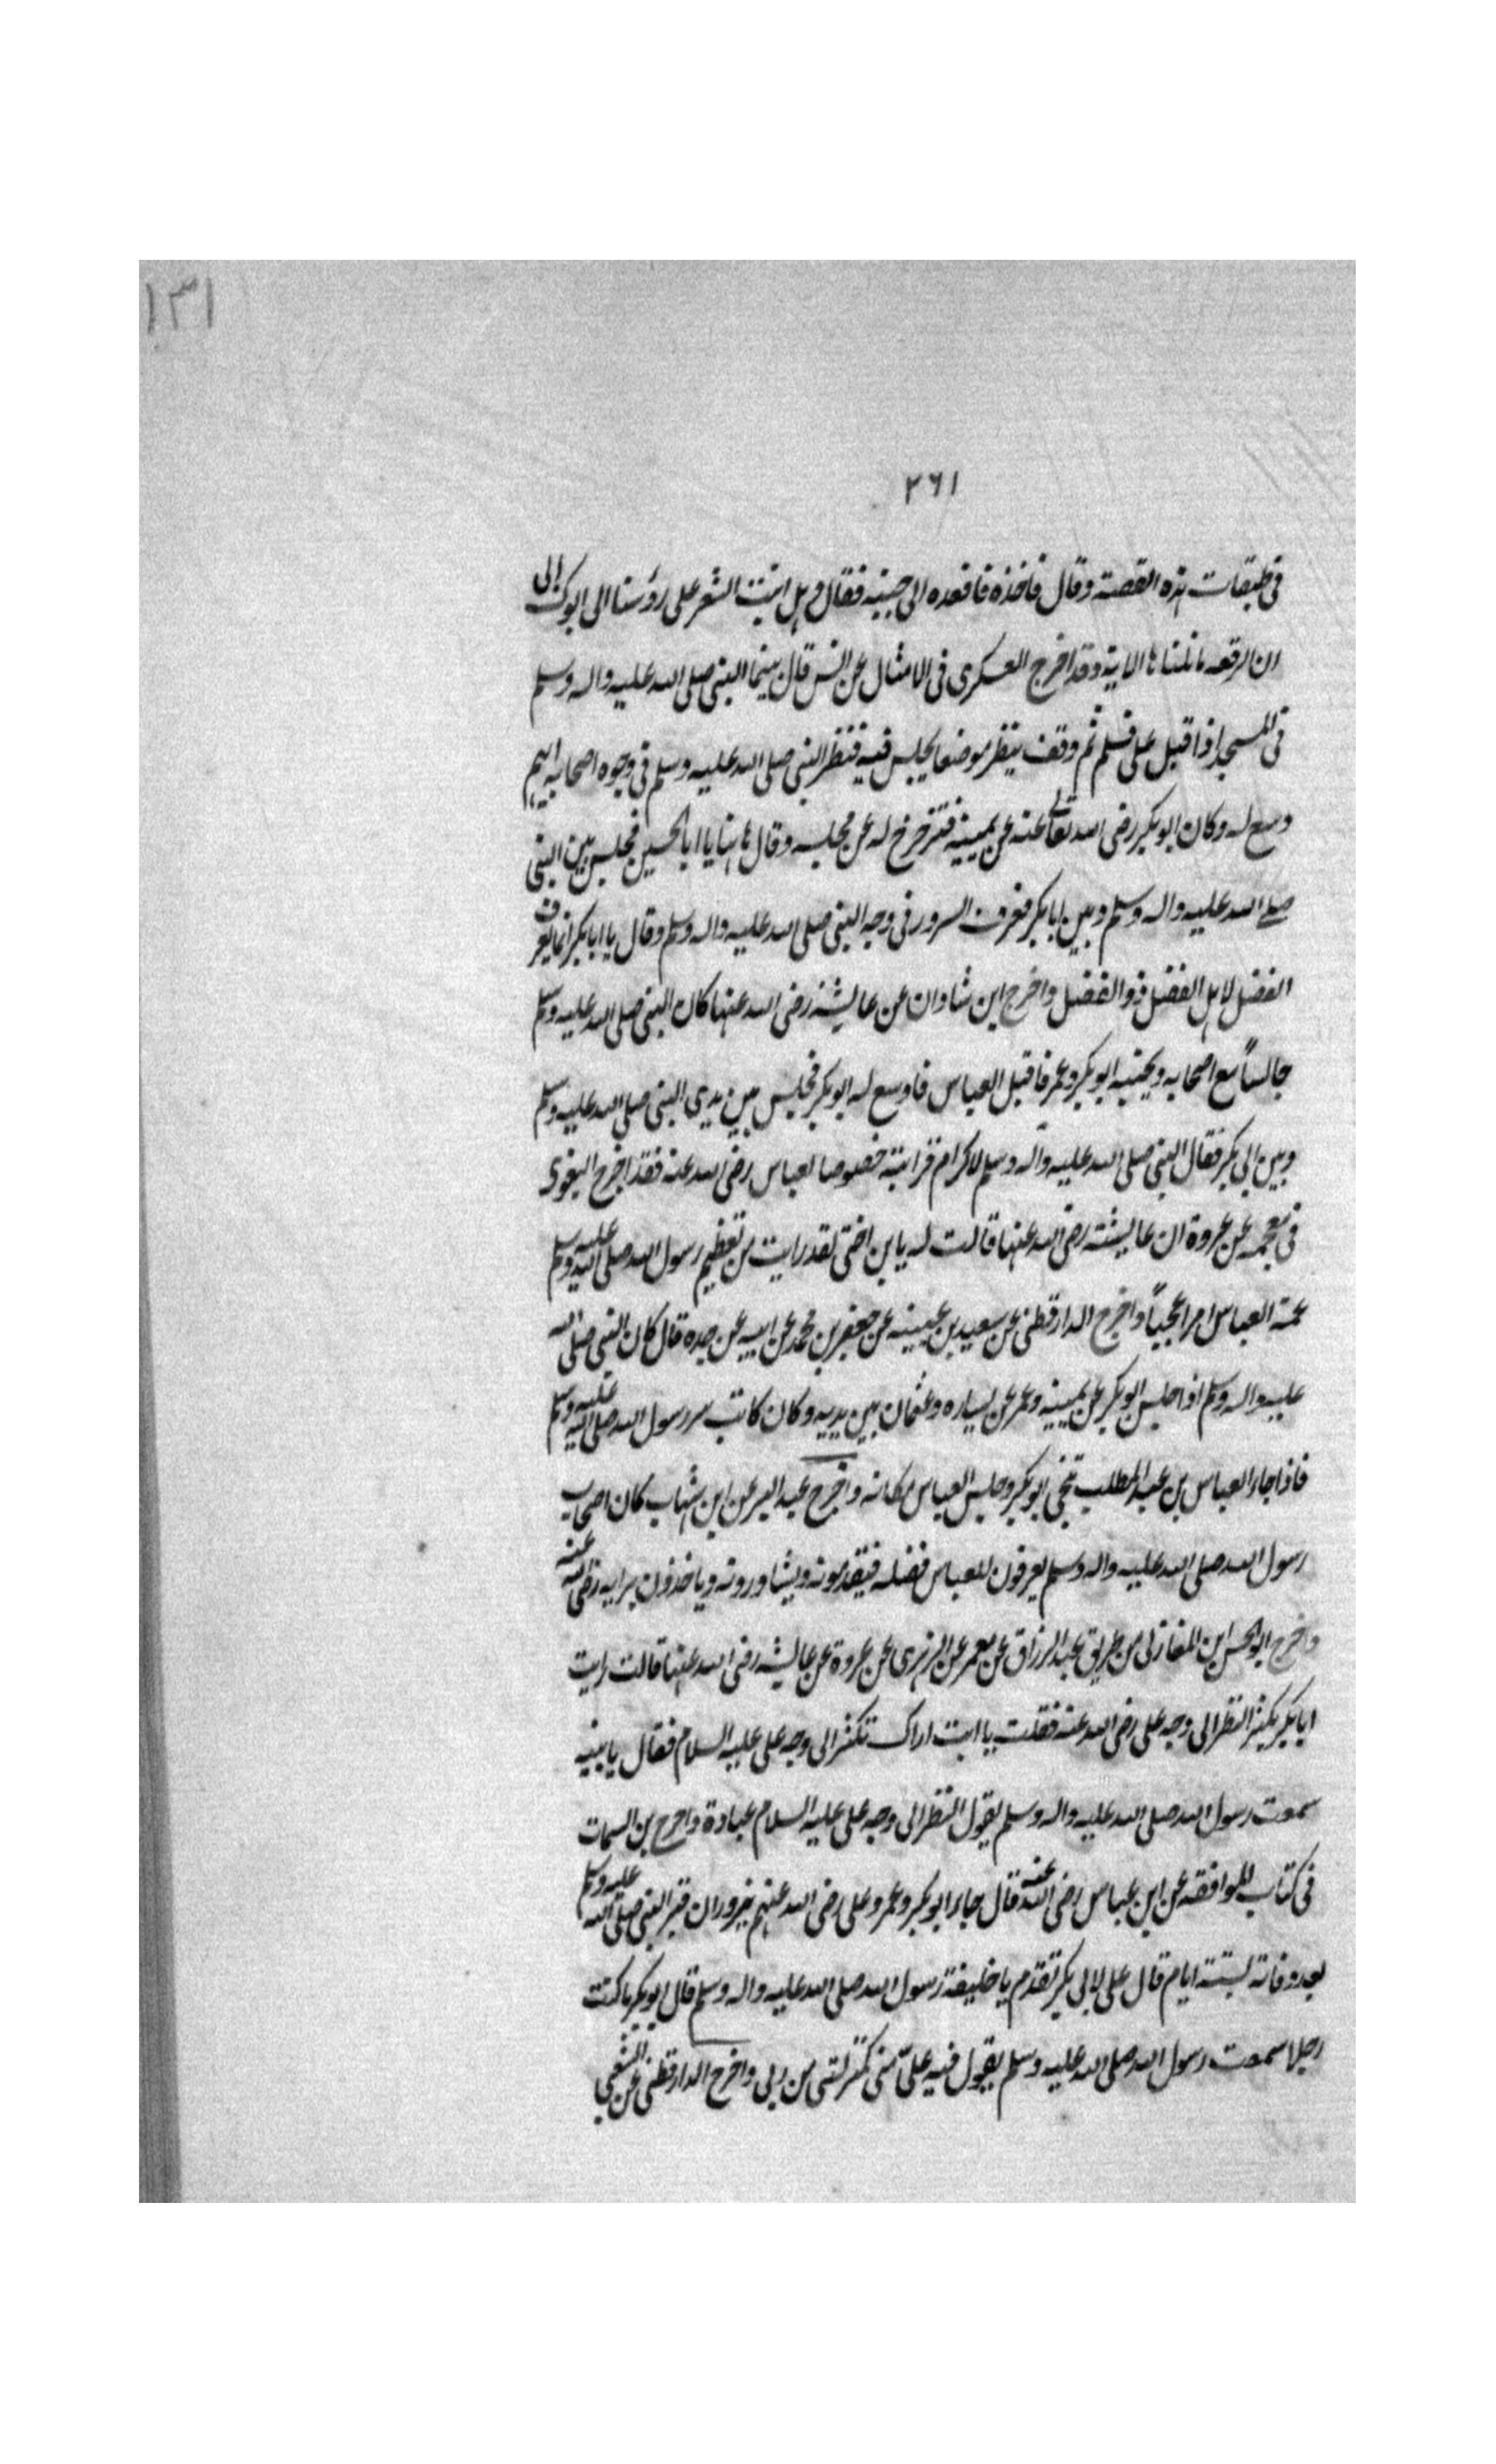 ١٣١
٢٦١
فى طبقات هذه القصة وقال فاخذه فاقعده الى جنبه فقال وهل انبت الشعر على رؤسنا الى ابوك الى
ان الرفعه مانلناها الا به وقد اخرج العسكرى فى الامثال عن انس قال بينما النبى صلى الله عليه واله وسلم
فى المسجد اذا قبل على فسلم ثم وقف ينظر موضعا يجلس فيه فنظر النبى صلى الله عليه وسلم فى وجوه اصحابه ايهم
وسع له وكان ابو بكر رضى الله تعالى عنه عن يمينه فتزحزح له عن مجلسه وقال هاهنا يا ابا الحسن فجلس بين النبى
صلى الله عليه واله وسلم وبين ابابكر فعرف السرور فى وجه النبى صلى الله عليه واله وسلم وقال يا ابابكر انما يعرف
الفضل لاهل الفضل ذو الفضل واخرج ابن شاذان عن عايشة رضى الله عنها كان النبى صلى الله عليه وسلم
جالساً مع اصحابه وبجنبه ابو بكر وعمر فاقبل العباس فاوسع له ابو بكر فجلس بين يدى النبى صلى الله عليه وسلم
وبين ابى بكر فقال النبى صلى الله عليه وآله وسلم لاكرام قرابته خصوصا لعباس رضى الله عنه فقد اخرج البغوى
فى معجمه عن عروة ان عايشة رضى الله عنها قالت له يا بن اختى لقد رايت من تعظيم رسول الله صلى الله عليه وسلم
عمه العباس امرا عجيباً واخرج الدارقطنى عن سعيد بن عيينه عن جعفر بن محمد عن ابيه عن جده قال كان النبى صلى الله
عليه واله وسلم اذا جلس ابو بكر عن يمينه وعمر عن يساره وعثمان بين يديه وكان كاتب سر رسول الله صلى الله عليه وسلم
فاذا جاء العباس بن عبد المطلب تنحى ابو بكر وجلس العباس مكانه واخرج عبد البر عن ابن شهاب كان اصحاب
رسول الله صلى الله عليه واله وسلم يعرفون للعباس فضله فيقدمونه ويشاورونه وياخذون برايه رضى الله عنه
واخرج ابو الحسن ابن المغازلى من طريق عبد الرزاق عن معمر عن الزهرى عن عروة عن عايشه رضى الله عنها قالت رايت
ابا بكر يكثر النظر الى وجه على رضى الله عنه فقلت يا ابت اراك تكثر الى وجه على عليه السلام فقال يا بنيه
سمعت رسول الله صلى الله عليه واله وسلم يقول النظر الى وجه على عليه السلام عبادة واخرج بن السمات
فى كتاب الموافقه عن ابن عباس رضى الله عنه قال جاء ابو بكر وعمر وعلى رضى الله عنهم يزوران قبر النبى صلى الله عليه وسلم
بعد وفاته بستة ايام قال على لابى بكر تقدم يا خليفة رسول الله صلى الله عليه واله وسلم قال ابو بكر ما كنت
رجلا سمعت رسول الله صلى الله عليه وسلم يقول فيه علىّ منى كمنزلتى من ربى واخرج الدارقطنى عن الشعبى